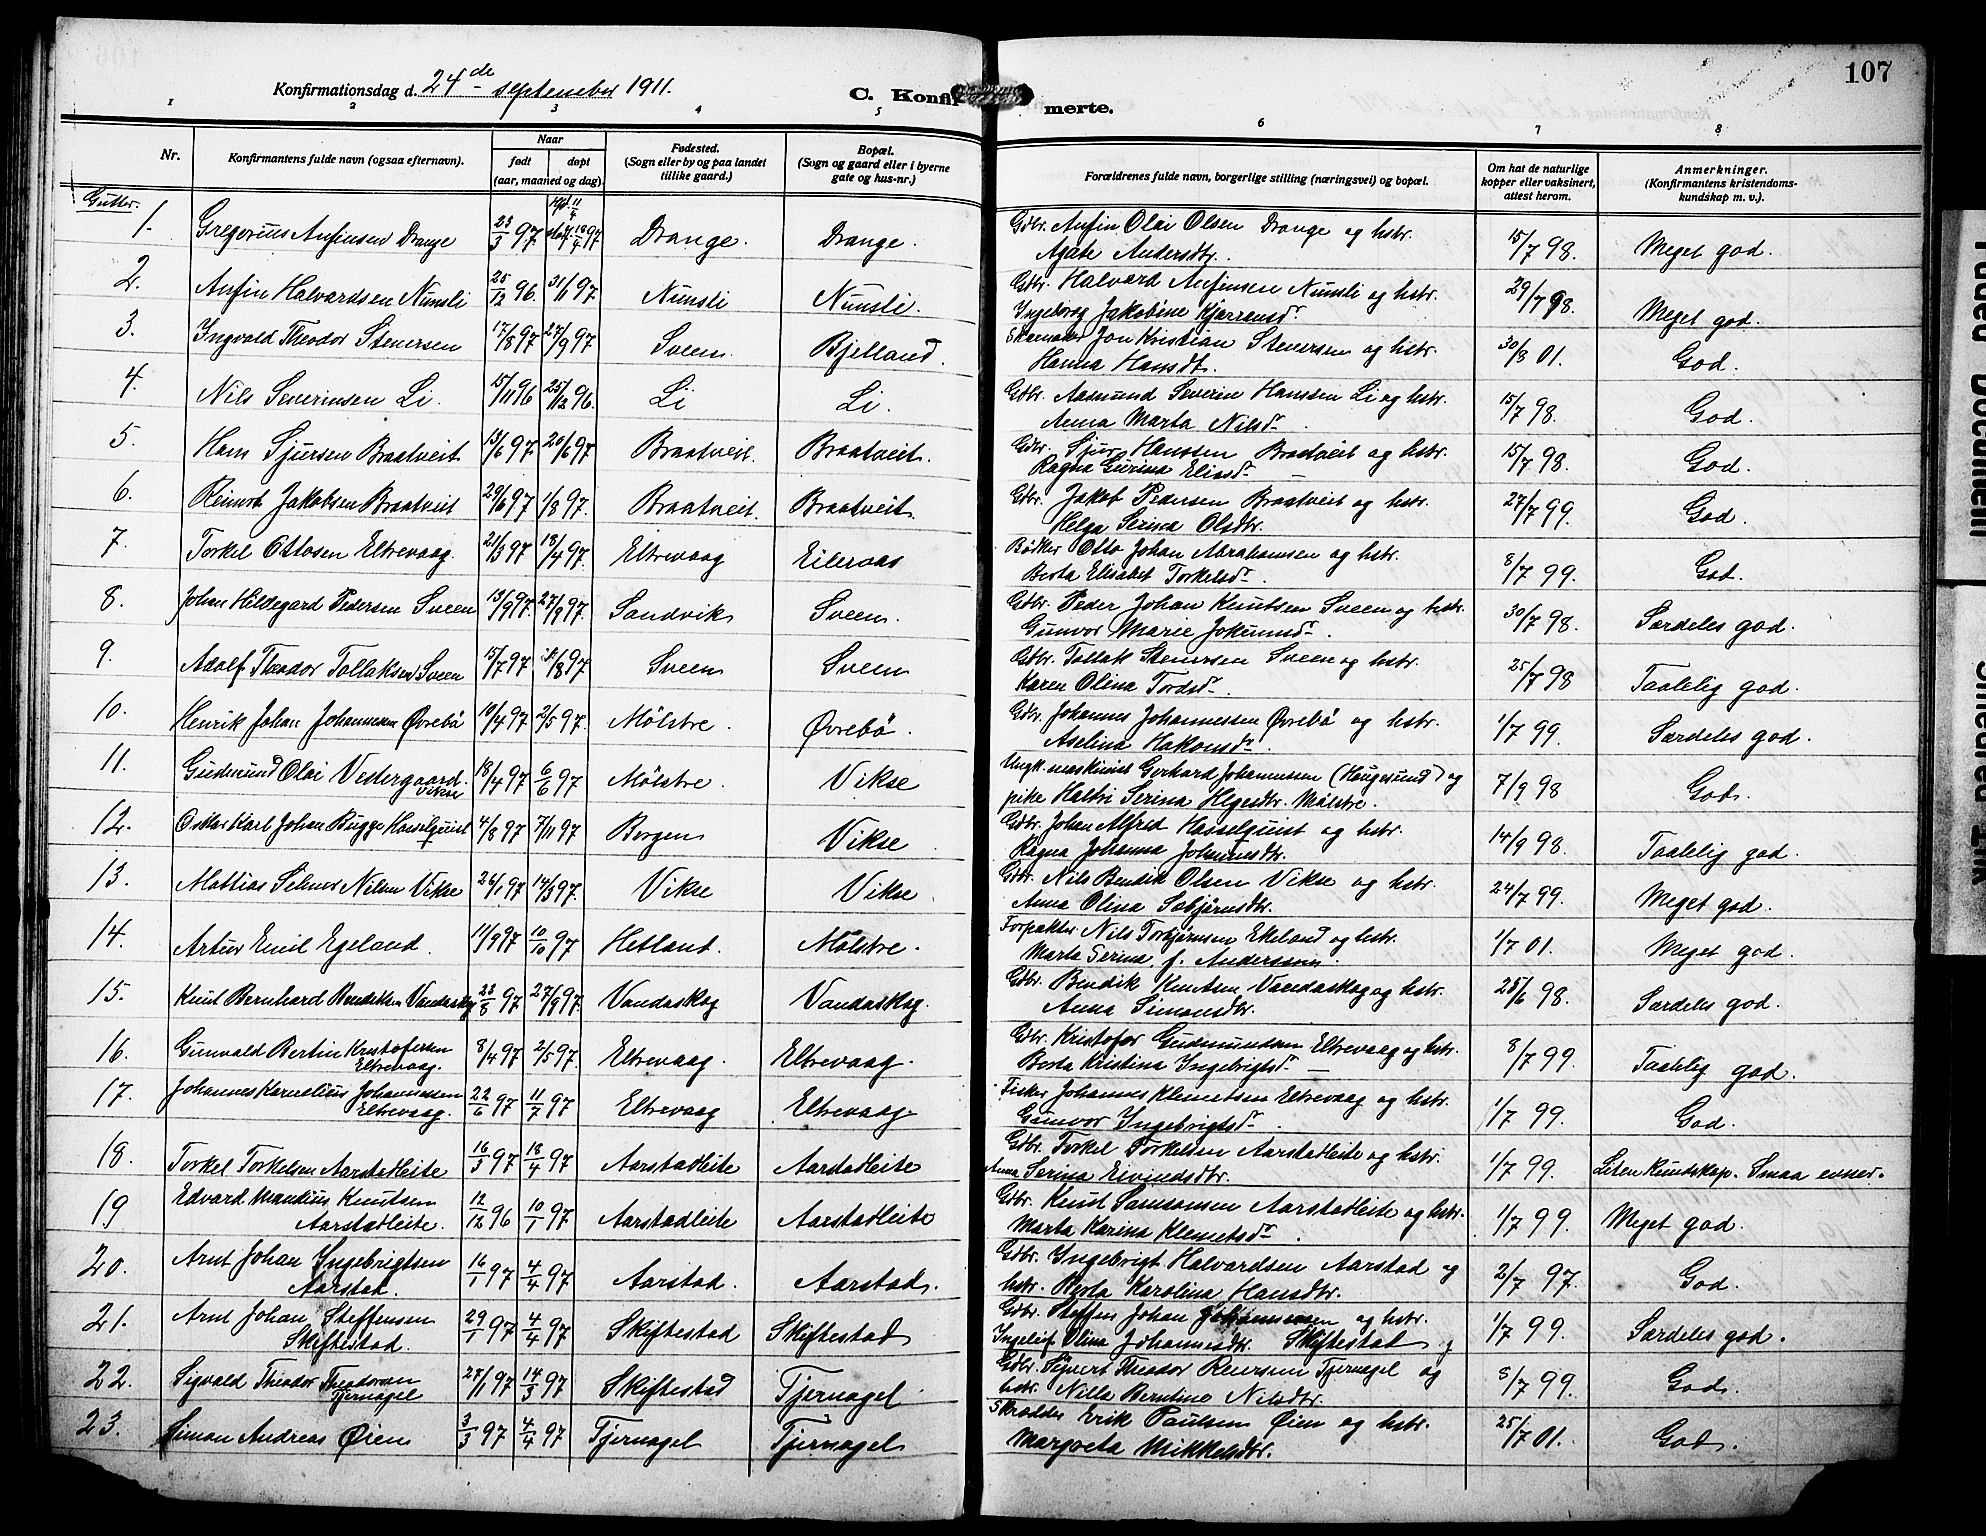 107
Konfirmationsdag d. 24de september 1911.
C. Konfirmerte.
1 2 3 4 5 6 7 8
Nr.
Konfirmantens fulde navn (ogsaa efternavn).
Naar
født døpt
(aar, maaned og dag).
Fødested.
(Sogn eller by og paa landet
tillike gaard.)
Bopæl.
(Sogn og gaard eller i byerne
gate og hus-nr.)
Forældrenes fulde navn, borgerlige stilling (næringsvei) og bopæl.
Om hat de naturlige
kopper eller vaksinert,
attest herom.
Anmerkninger.
(Konfirmantens kristendoms-
kundskap m. v.).
Gutter.
1. Gregorius Anfinsen Drange 23/3 97. 11/4 18/4 97. Drange. Drange. Gdbr. Anfin Olai Olsen Drange og hstr.
Agate Andersdtr. 15/7 98. Meget god.
2. Anfin Halvardsen Nunsli 25/12 96. 31/1 97. Nunsli Nunsli. Gdbr. Halvard Anfinsen Nunsli og hstr.
Ingeborg Jakobine 29/7 98. Meget god.
3. Ingvald Theodor Stenersen 17/8 97 27/9 97. Sveen. Bjelland. Skomaker Jon Kristian Stenersen og hstr.
Hanna Hansdt. 30/8 01. God.
4. Nils Severinsen Li. 15/11 96 25/12 96. Li Li. Gdbr. Aamund Severin Hanssen Li og hstr.
Anna Marta Nilsdr. 15/7 98. God.
5. Hans Sjursen Braatveit 13/6 97. 20/6 97. Braatveit. Braatveit. Gdbr. Sjur Hanssen Braatveit og hstr.
Ragna Gurina Eliasdr. 15/7 98. God.
6. Reinert Jakobsen Braatveit 29/6 97 1/8 97. Braatveit. Braatveit. Gdbr. Jakob Pedersen Braatveit og hstr.
Helga Serina Olsdtr. 27/7 99. God.
7. Torkel Ottosen Eltrevaag. 21/3 97 18/4 97. Eltrevaag Eilervaas Bødker Otto Johan Abrahamsen og hstr.
Berta Elisabet Torkelsdr. 8/7 99. God.
8. Johan Hildegard Pedersen Sveen 13/9 97. 27/9 97. Sandvik Sveen. Gdbr. Peder Johan Knutsen Sveen og hstr.
Gunvor Marie Jokumsdr. 30/7 98. Særdeles god.
9. Adolf Theodor Tollaksen Sveen 15/7 97. /8 97. Sveen Sveen Gdbr. Tollak Stenersen Sveen og hstr.
Karen Olina Tordsdr. 25/7 98 Taalelig god.
10. Henrik Johan Johannessen Øvrebø 10/4 97. 2/5 97. Mølstre. Øvrebø. Gdbr. Johannes Johannessen Øvrebø og hstr.
Aselina Hakonsdr. 1/7 99. Særdeles god.
11. Gudmund Olai Vestergaard. 18/4 97. 6/6 97 Mølstre. Vikse Ungk. maskinist Gerhard Johannessen (Haugesund) og
Vikse
pike Halbri Serina Hegesdtr. Mølstre. 7/9 98 God.
12. Oskar Karl Johan Bugge Hasselquist 4/8 97. 7/11 97 Borgen Vikse Gdbr. Johan Alfred Hasselquist og hstr.
Ragna Johanna Johannsdtr. 14/9 98. Taalelig god.
13. Mattias Selmer Nilsen Vikse 24/1 97 14/3 97. Vikse Vikse. Gdbr. Nils Bendik Olsen Vikse og hstr.
Anna Olina Sebjørnsdtr. 24/7 99. Meget god.
14. Artur Emil Egeland. 11/9 97 10/10 97 Hetland. Mølstre. Forpakter Nils Torbjørnsen Ekeland og hstr.
Marta Serina f. Anderssen. 1/7 01. Meget god.
15. Knut Bernhard Bendiksen Vandaskog 23/8 97. 27/9 97. Vandaskog Vandaskog. Gdbr. Bendik Knutsen Vandaskog og hstr.
Anna Simonsdtr. 25/6 98. Særdeles god.
16. Gunvald Bertin Kristofersen
Eltrevaag. 8/4 97 2/5 97. Eltrevaag. Eltrevaag. Gdbr. Kristofer Gudmundsen Eltrevaag og hstr.
Berta Kristina Ingebrigtsdr. 8/7 99. Taalelig god.
17. Johannes Kornelius Johannessen
Eltrevaag. 22/6 97 11/7 97 Eltrevaag Eltrevaag. Fisker Johannes Klemetsen Eltrevaag og hstr.
Gunvor Ingebrigtsdr. 1/7 99. God.
18. Torkel Torkelsen Aarstadleite 16/3 97 18/4 97 Aarstadleite Aarstadleite Gdbr. Torkel Torkelsen Aarstadleite og hstr.
Anna Serina Eivindsdtr. 1/7 99. Liten kundskap. Smaa evner.
19 Edvard Mandius Knutsen
Aarstadleite. 12/12 96 10/1 97. Aarstadleite Aarstadleite Gdbr. Knut Samsonsen Aarstadleite og hstr.
Marta Karina Klemetsdr. 1/7 99. Meget god.
20. Arnt Johan Ingebrigtsen
Aarstad. 16/1 97 4/4 97. Aarstad. Aarstad. Gdbr. Ingebrigt Halvardsen Aarstad og
hstr. Berta Karolina Hansdtr. 2/7 97. God.
21. Arnt Johan Steffensen
Skiftestad. 29/1 97 4/4 97. Skiftestad Skiftestad Gdbr. Steffen Johan Johannessen og hstr.
Ingeleif Olina Johannesdtr. Skiftestad 1/7 99. Særdeles god.
22. Sigvald Theodor Theodorsen
Tjernagel 27/1 97 14/3 97 Skiftestad Tjernagel Gdbr. Syvert Theodor Reiersen Tjernagel og
hstr. Nilla Berntine Nilsdtr. 8/7 99. God.
23. Simon Andreas Øien 3/3 97 4/4 97 Tjernagel Tjernagel Skrædder Erik Paulsen Øien og hstr.
Margreta Mikkelsdtr. 25/7 01. God.